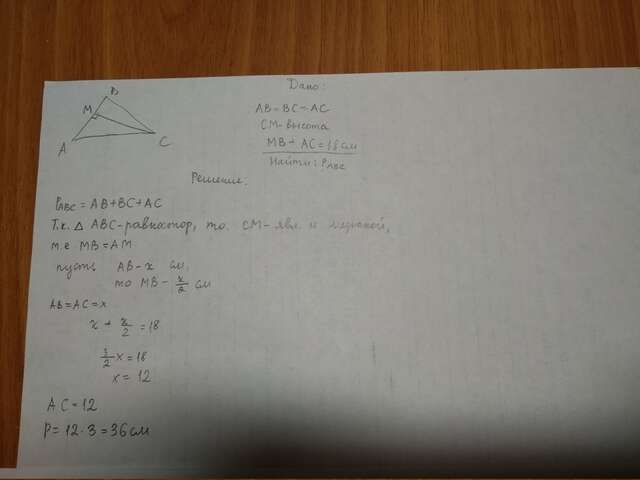 B
M
A
C
Дано:
AB=BC=AC
CM-высота
MB+AC=18см
Найти: PАВС
Решение.
PАВС=AB+BC+AC
Т.к. △ ABC-равностор, то CM-явл. и медианой,
т.е MB=AM
пусть AB-x см,
то MB-x/2 см
AB=AC=x
x+x/2=18
3/2x=18
x=12
AC=12
P=12·3=36см